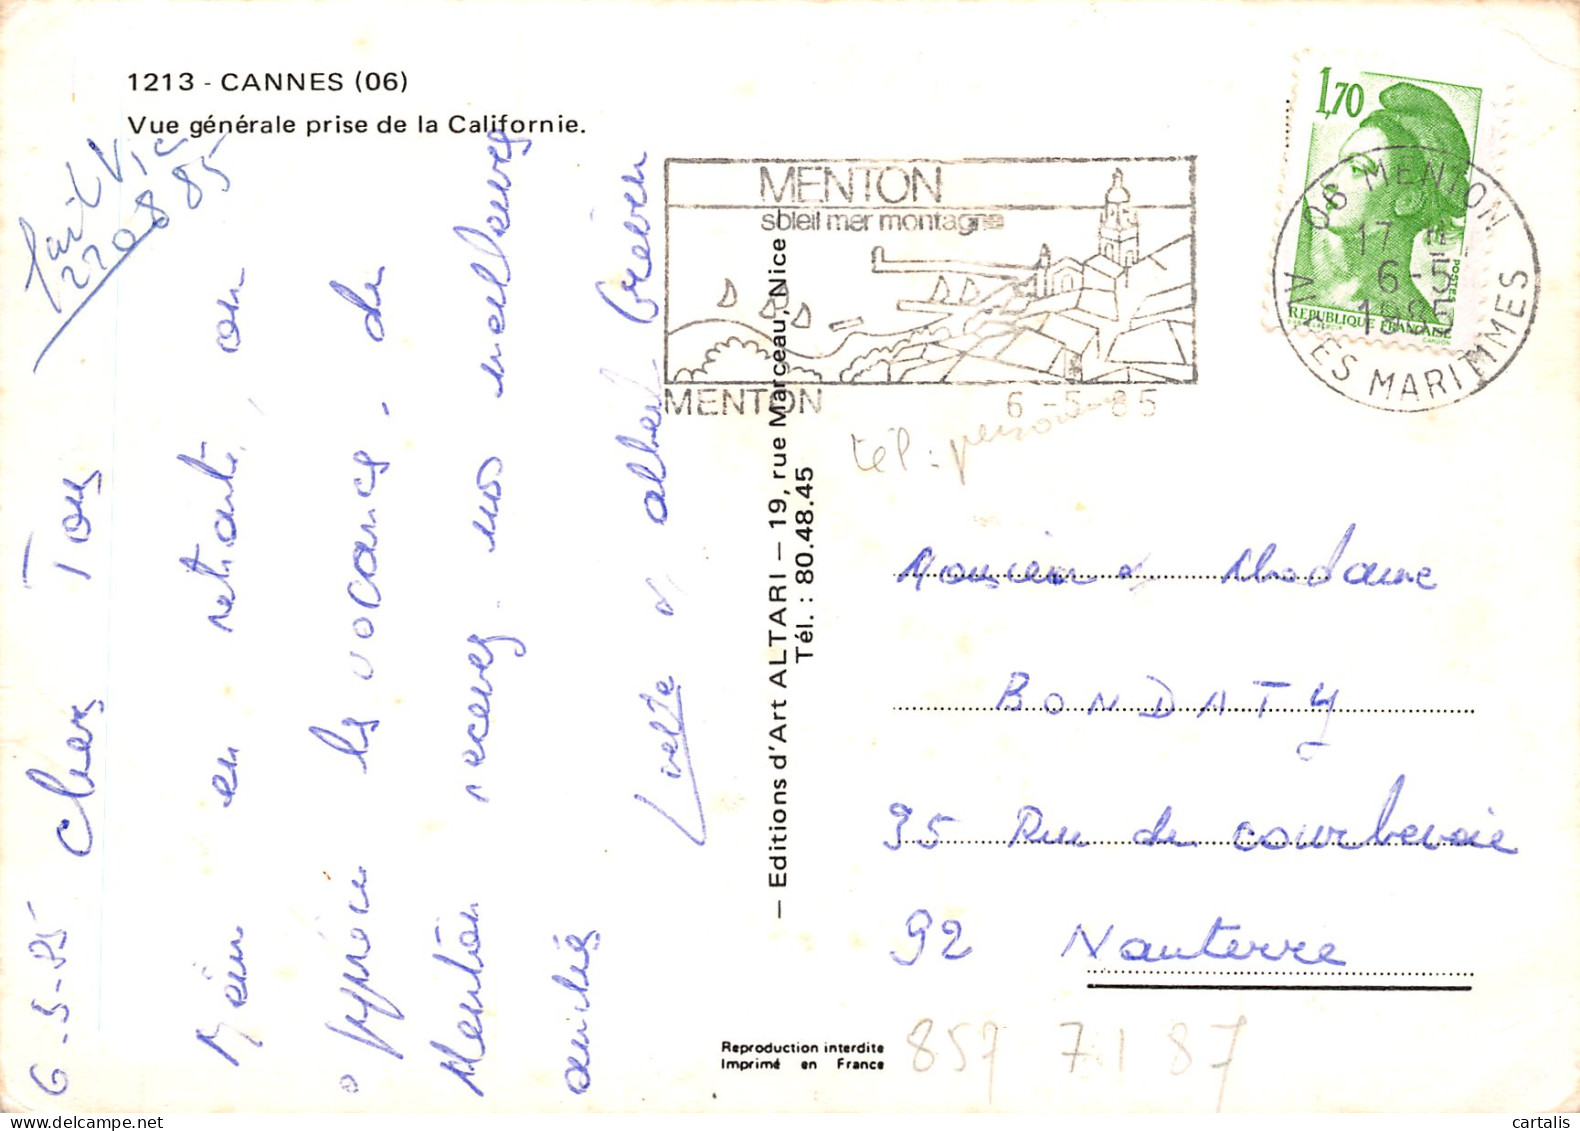 1213 - CANNES (06)
Vue générale prise de la Californie.
22 08 85
6-5-85 Chers Tous
Même en retraité, on
apprécie les vacances. de
Menton recevez nos meilleures
amitiés
Livette & Albert
— Editions d'Art ALTARI — 19, rue Marceau, Nice
Tél. : 80.48.45
MENTON
soleil mer montagne
MENTON 6-5-85
1,70
REPUBLIQUE FRANÇAISE
POSTES
06 MENTON
17 H
6-5
1985
ALPES MARITIMES
tél: personne
Monsieur & Madame
BONDATY
95 Rue de Courbevoie
92 Nanterre
Reproduction interdite
Imprimé en France
857 71 87
cartalis